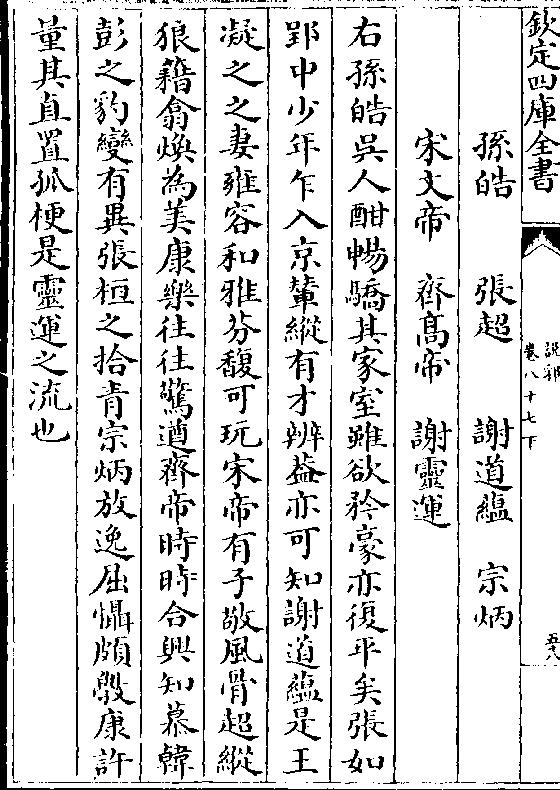 欽定四庫全書
說郛
卷八十七下
五八
孫皓　張超　謝道蘊　宗炳
宋文帝　齊髙帝　謝靈運
右孫皓吳人酣暢驕其家室雖欲矜豪亦復平矣張如
郢中少年乍入京輦縱有才辨葢亦可知謝道蘊是王
凝之之妻雍容和雅芬馥可玩宋帝有子敬風骨超縱
狼籍翕煥為美康樂往往驚遒齊帝時時合興知慕韓
彭之豹變有異張桓之拾青宗炳放逸屈懾頗斆康許
量其直置孤梗是靈運之流也